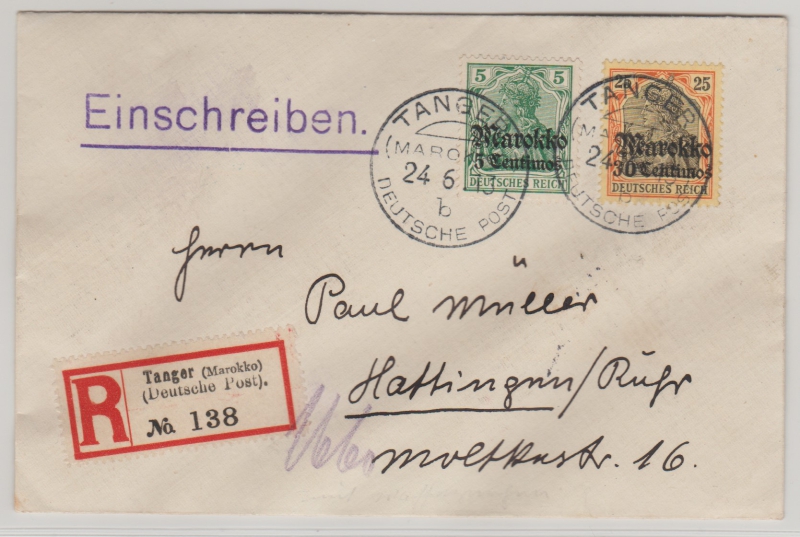 Einschreiben.
5 5
Marokko
5 Centimos
DEUTSCHES REICH
25 25
Marokko
30 Centimos
DEUTSCHES REICH
TANGER
(MAROKKO)
24 6 13
b
DEUTSCHE POST
TANGER
24
b
DEUTSCHE POST
Herrn
Paul Müller
Hattingen/Ruhr
Moltkestr. 16.
R
Tanger (Marokko)
(Deutsche Post).
No. 138